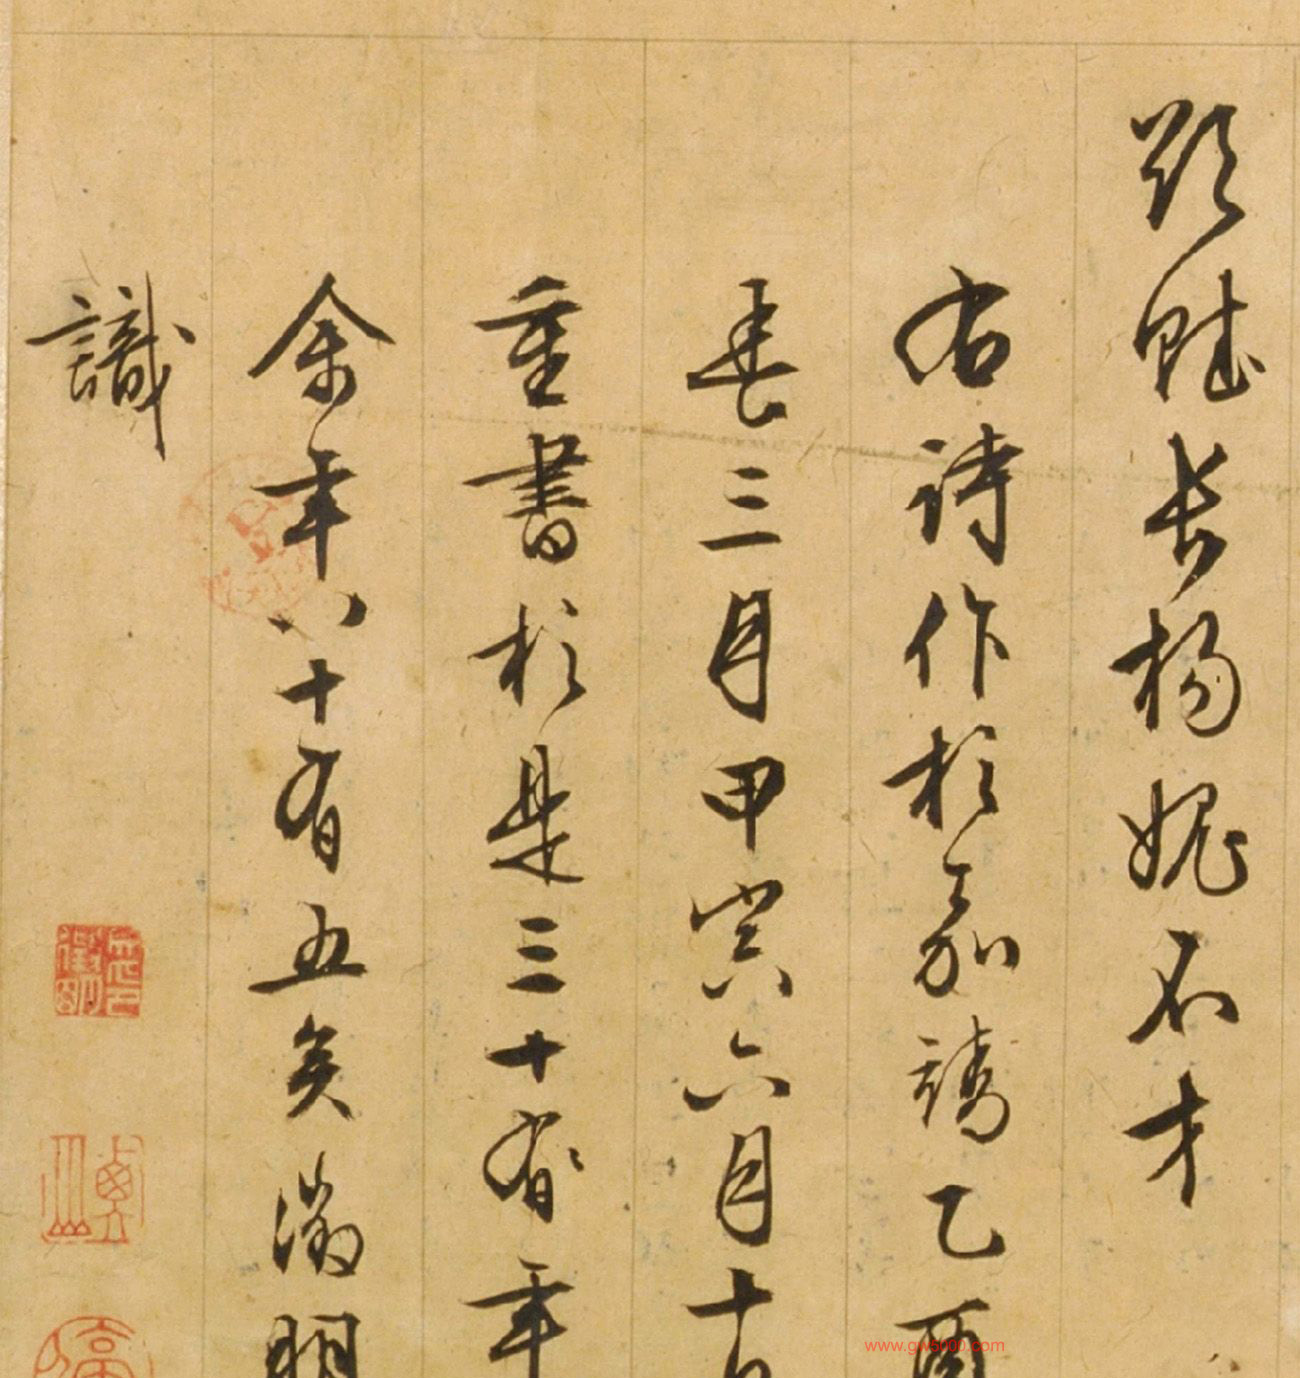 欲賦長楊媿不才
右詩作於嘉靖乙酉
春三月甲寅六月十
重書於是三十有年
余年八十有五矣徵明
識
www.gw5000.com